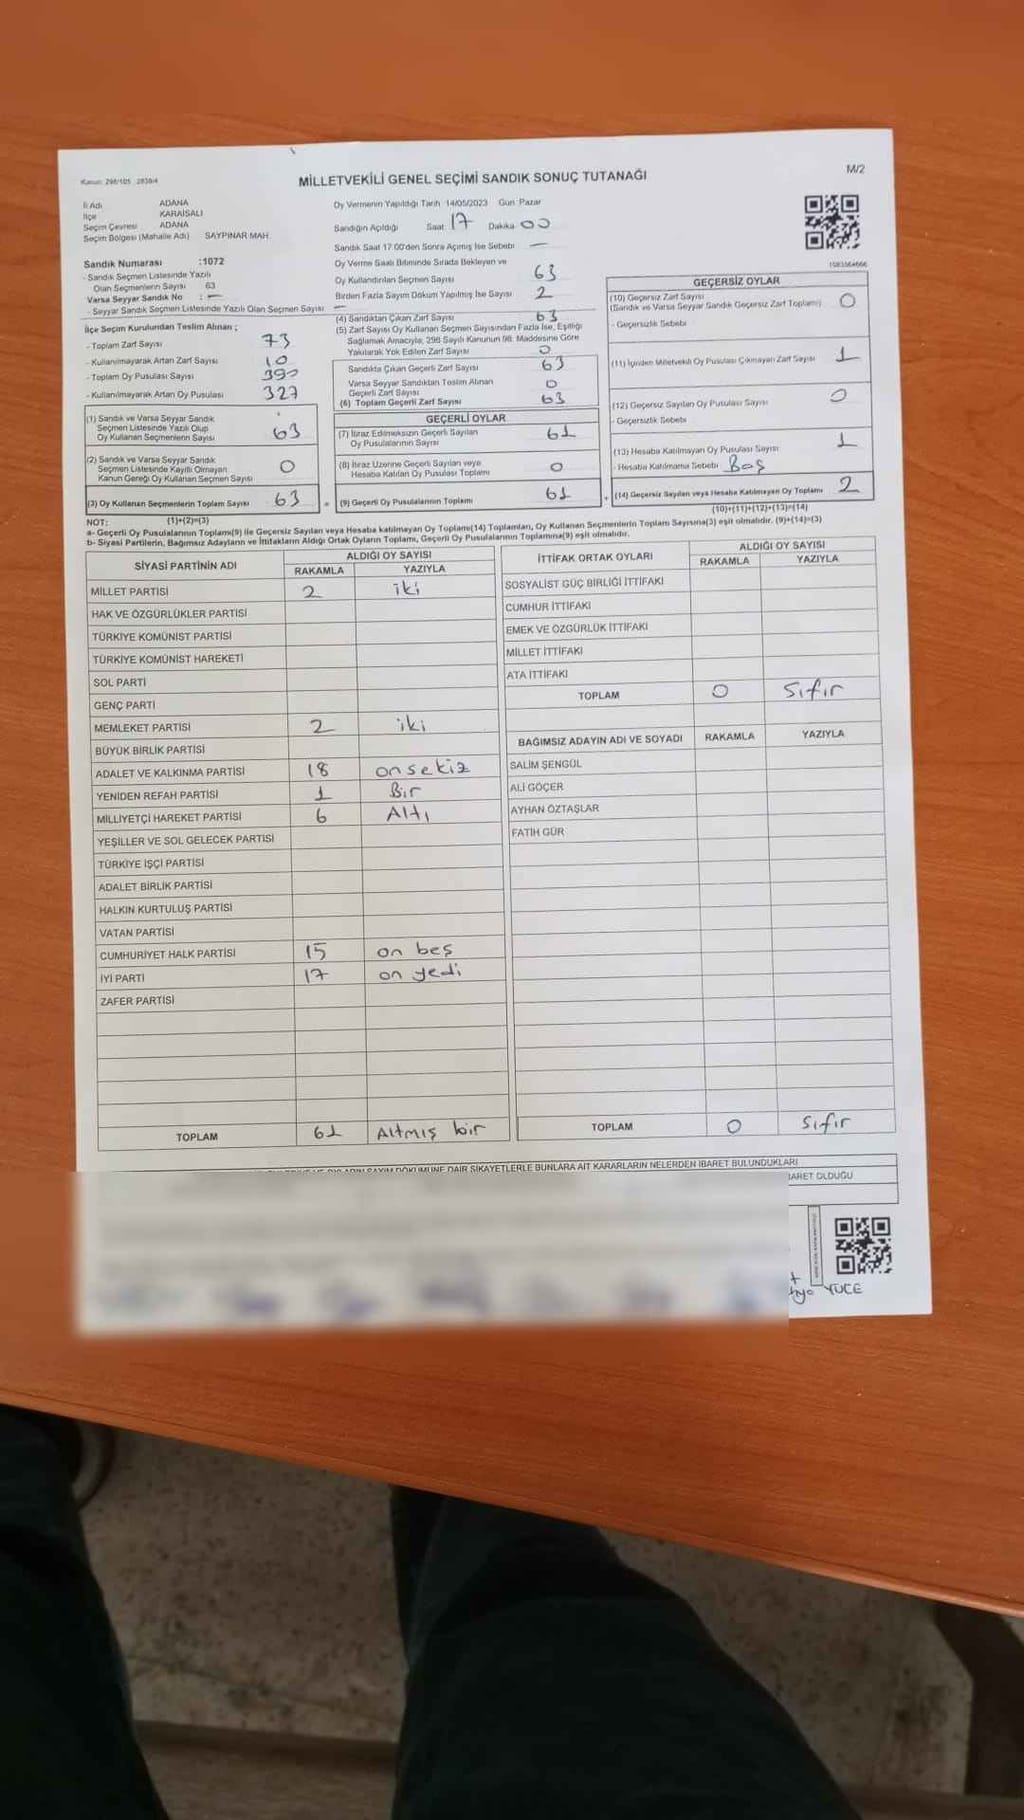 Kanun: 298/105 2839/4
MİLLETVEKİLİ GENEL SEÇİMİ SANDIK SONUÇ TUTANAĞI
M/2
İl Adı ADANA
İlçe KARAİSALI
Seçim Çevresi ADANA
Seçim Bölgesi (Mahalle Adı) SAYPINAR MAH.
Oy Vermenin Yapıldığı Tarih 14/05/2023 Gün Pazar
Sandığın Açıldığı Saat 17 Dakika 00
Sandık Saat 17.00'den Sonra Açılmış İse Sebebi —
Sandık Numarası :1072
- Sandık Seçmen Listesinde Yazılı
Olan Seçmenlerin Sayısı 63
Varsa Seyyar Sandık No : —
- Seyyar Sandık Seçmen Listesinde Yazılı Olan Seçmen Sayısı —
Oy Verme Saati Bitiminde Sırada Bekleyen ve
Oy Kullandırılan Seçmen Sayısı 63
Birden Fazla Sayım Döküm Yapılmış İse Sayısı 2
İlçe Seçim Kurulundan Teslim Alınan ;
- Toplam Zarf Sayısı 73
- Kullanılmayarak Artan Zarf Sayısı 10
- Toplam Oy Pusulası Sayısı 390
- Kullanılmayarak Artan Oy Pusulası 327
(4) Sandıktan Çıkan Zarf Sayısı 63
(5) Zarf Sayısı Oy Kullanan Seçmen Sayısından Fazla İse, Eşitliği
Sağlamak Amacıyla, 298 Sayılı Kanunun 98. Maddesine Göre
Yakılarak Yok Edilen Zarf Sayısı 0
Sandıkta Çıkan Geçerli Zarf Sayısı 63
Varsa Seyyar Sandıktan Teslim Alınan
Geçerli Zarf Sayısı 0
(6) Toplam Geçerli Zarf Sayısı 63
(1) Sandık ve Varsa Seyyar Sandık
Seçmen Listesinde Yazılı Olup
Oy Kullanan Seçmenlerin Sayısı 63
(2) Sandık ve Varsa Seyyar Sandık
Seçmen Listesinde Kayıtlı Olmayan
Kanun Gereği Oy Kullanan Seçmen Sayısı 0
(3) Oy Kullanan Seçmenlerin Toplam Sayısı 63
(1)+(2)=(3)
GEÇERLİ OYLAR
(7) İtiraz Edilmeksizin Geçerli Sayılan
Oy Pusulalarının Sayısı 61
(8) İtiraz Üzerine Geçerli Sayılan veya
Hesaba Katılan Oy Pusulası Toplamı 0
= (9) Geçerli Oy Pusulalarının Toplamı 61
GEÇERSİZ OYLAR
(10) Geçersiz Zarf Sayısı
(Sandık ve Varsa Seyyar Sandık Geçersiz Zarf Toplamı) 0
- Geçersizlik Sebebi
(11) İçinden Milletvekili Oy Pusulası Çıkmayan Zarf Sayısı 1
(12) Geçersiz Sayılan Oy Pusulası Sayısı 0
- Geçersizlik Sebebi
(13) Hesaba Katılmayan Oy Pusulası Sayısı 1
- Hesaba Katılmama Sebebi Boş
+ (14) Geçersiz Sayılan veya Hesaba Katılmayan Oy Toplamı 2
(10)+(11)+(12)+(13)=(14)
NOT:
a- Geçerli Oy Pusulalarının Toplamı(9) ile Geçersiz Sayılan veya Hesaba katılmayan Oy Toplamı(14) Toplamları, Oy Kullanan Seçmenlerin Toplam Sayısına(3) eşit olmalıdır. (9)+(14)=(3)
b- Siyasi Partilerin, Bağımsız Adayların ve İttifakların Aldığı Ortak Oyların Toplamı, Geçerli Oy Pusulalarının Toplamına(9) eşit olmalıdır.
SİYASİ PARTİNİN ADI ALDIĞI OY SAYISI
RAKAMLA YAZIYLA
MİLLET PARTİSİ 2 iki
HAK VE ÖZGÜRLÜKLER PARTİSİ
TÜRKİYE KOMÜNİST PARTİSİ
TÜRKİYE KOMÜNİST HAREKETİ
SOL PARTİ
GENÇ PARTİ
MEMLEKET PARTİSİ 2 iki
BÜYÜK BİRLİK PARTİSİ
ADALET VE KALKINMA PARTİSİ 18 onsekiz
YENİDEN REFAH PARTİSİ 1 Bir
MİLLİYETÇİ HAREKET PARTİSİ 6 Altı
YEŞİLLER VE SOL GELECEK PARTİSİ
TÜRKİYE İŞÇİ PARTİSİ
ADALET BİRLİK PARTİSİ
HALKIN KURTULUŞ PARTİSİ
VATAN PARTİSİ
CUMHURİYET HALK PARTİSİ 15 on beş
İYİ PARTİ 17 on yedi
ZAFER PARTİSİ
TOPLAM 61 Altmış bir
İTTİFAK ORTAK OYLARI ALDIĞI OY SAYISI
RAKAMLA YAZIYLA
SOSYALİST GÜÇ BİRLİĞİ İTTİFAKI
CUMHUR İTTİFAKI
EMEK VE ÖZGÜRLÜK İTTİFAKI
MİLLET İTTİFAKI
ATA İTTİFAKI
TOPLAM 0 Sıfır
BAĞIMSIZ ADAYIN ADI VE SOYADI RAKAMLA YAZIYLA
SALİM ŞENGÜL
ALİ GÖÇER
AYHAN ÖZTAŞLAR
FATİH GÜR
TOPLAM 0 Sıfır
SAYIM DÖKÜMÜNE DAİR ŞİKAYETLERLE BUNLARA AİT KARARLARIN NELERDEN İBARET BULUNDUKLARI
İBARET OLDUĞU
YÜCE